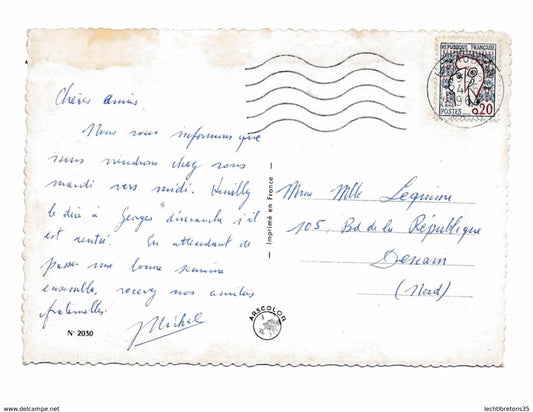 Chères amies.
Nous vous informons que
nous viendrons chez vous
mardi vers midi. Veuillez
le dire à Georges dimanche s'il
est rentré. En attendant de
passer une bonne
ensemble, recevez nos amitiés
fraternelles.
Michel
N° 2030
— Imprimé en France —
ARSCOLOR
REPUBLIQUE FRANÇAISE
POSTES 0,20
Mme Mlle Lequime
105, Bd de la République
Denain
(Nord)
lechtibretons35